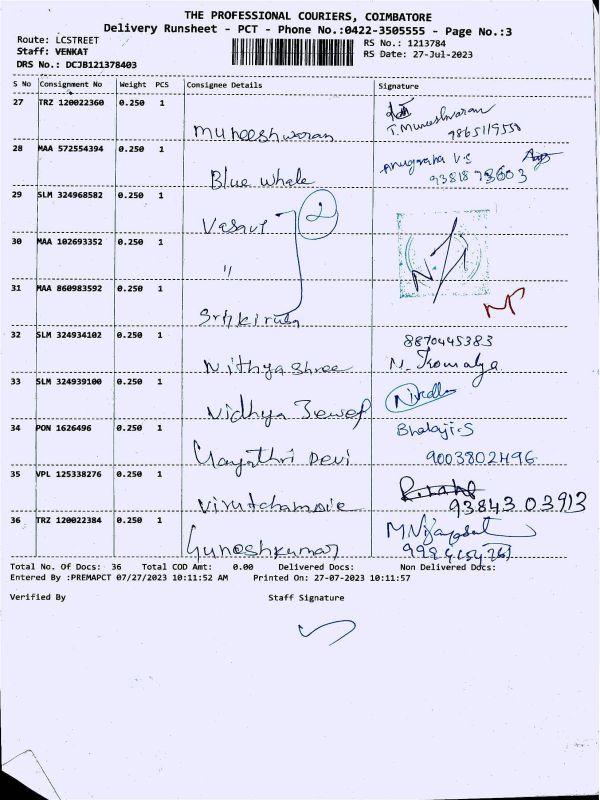 THE PROFESSIONAL COURIERS, COIMBATORE
Delivery Runsheet - PCT - Phone No.:0422-3505555 - Page No.:3
Route: LCSTREET
Staff: VENKAT
DRS No.: DCJB121378403
RS No.: 1213784
RS Date: 27-Jul-2023
S No Consignment No Weight PCS Consignee Details Signature
27 TRZ 120022360 0.250 1 Muneeshwaran T. Muneshwaran
28 MAA 572554394 0.250 1 Blue Whale Anugraha V.S
29 SLM 324968582 0.250 1 Vasavi 2
30 MAA 102693352 0.250 1 "
31 MAA 860983592 0.250 1
32 SLM 324934102 0.250 1 Nithya Shree 8870445383
33 SLM 324939100 0.250 1 Nidhya Jewel
34 PON 1626496 0.250 1 Gayathri Devi Bhalaji.S
9003802496
35 VPL 125338276 0.250 1 93843 03913
36 TRZ 120022384 0.250 1 Guneshkumar
Total No. Of Docs: 36 Total COD Amt: 0.00 Delivered Docs: Non Delivered Docs:
Entered By :PREMAPCT 07/27/2023 10:11:52 AM Printed On: 27-07-2023 10:11:57
Verified By Staff Signature